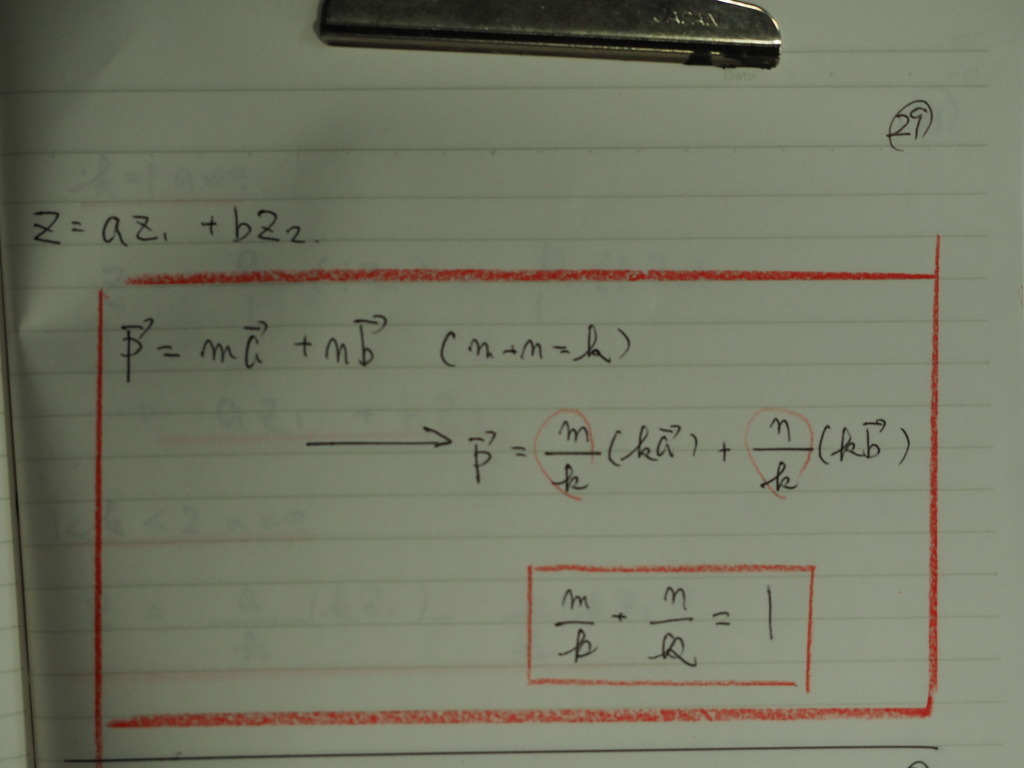 JAPAN
Date
㉙
z = az₁ + bz₂.
p⃗ = ma⃗ + nb⃗ (m + n = k)
⟶ p⃗ = m/k (ka⃗) + n/k (kb⃗)
m/k + n/k = 1